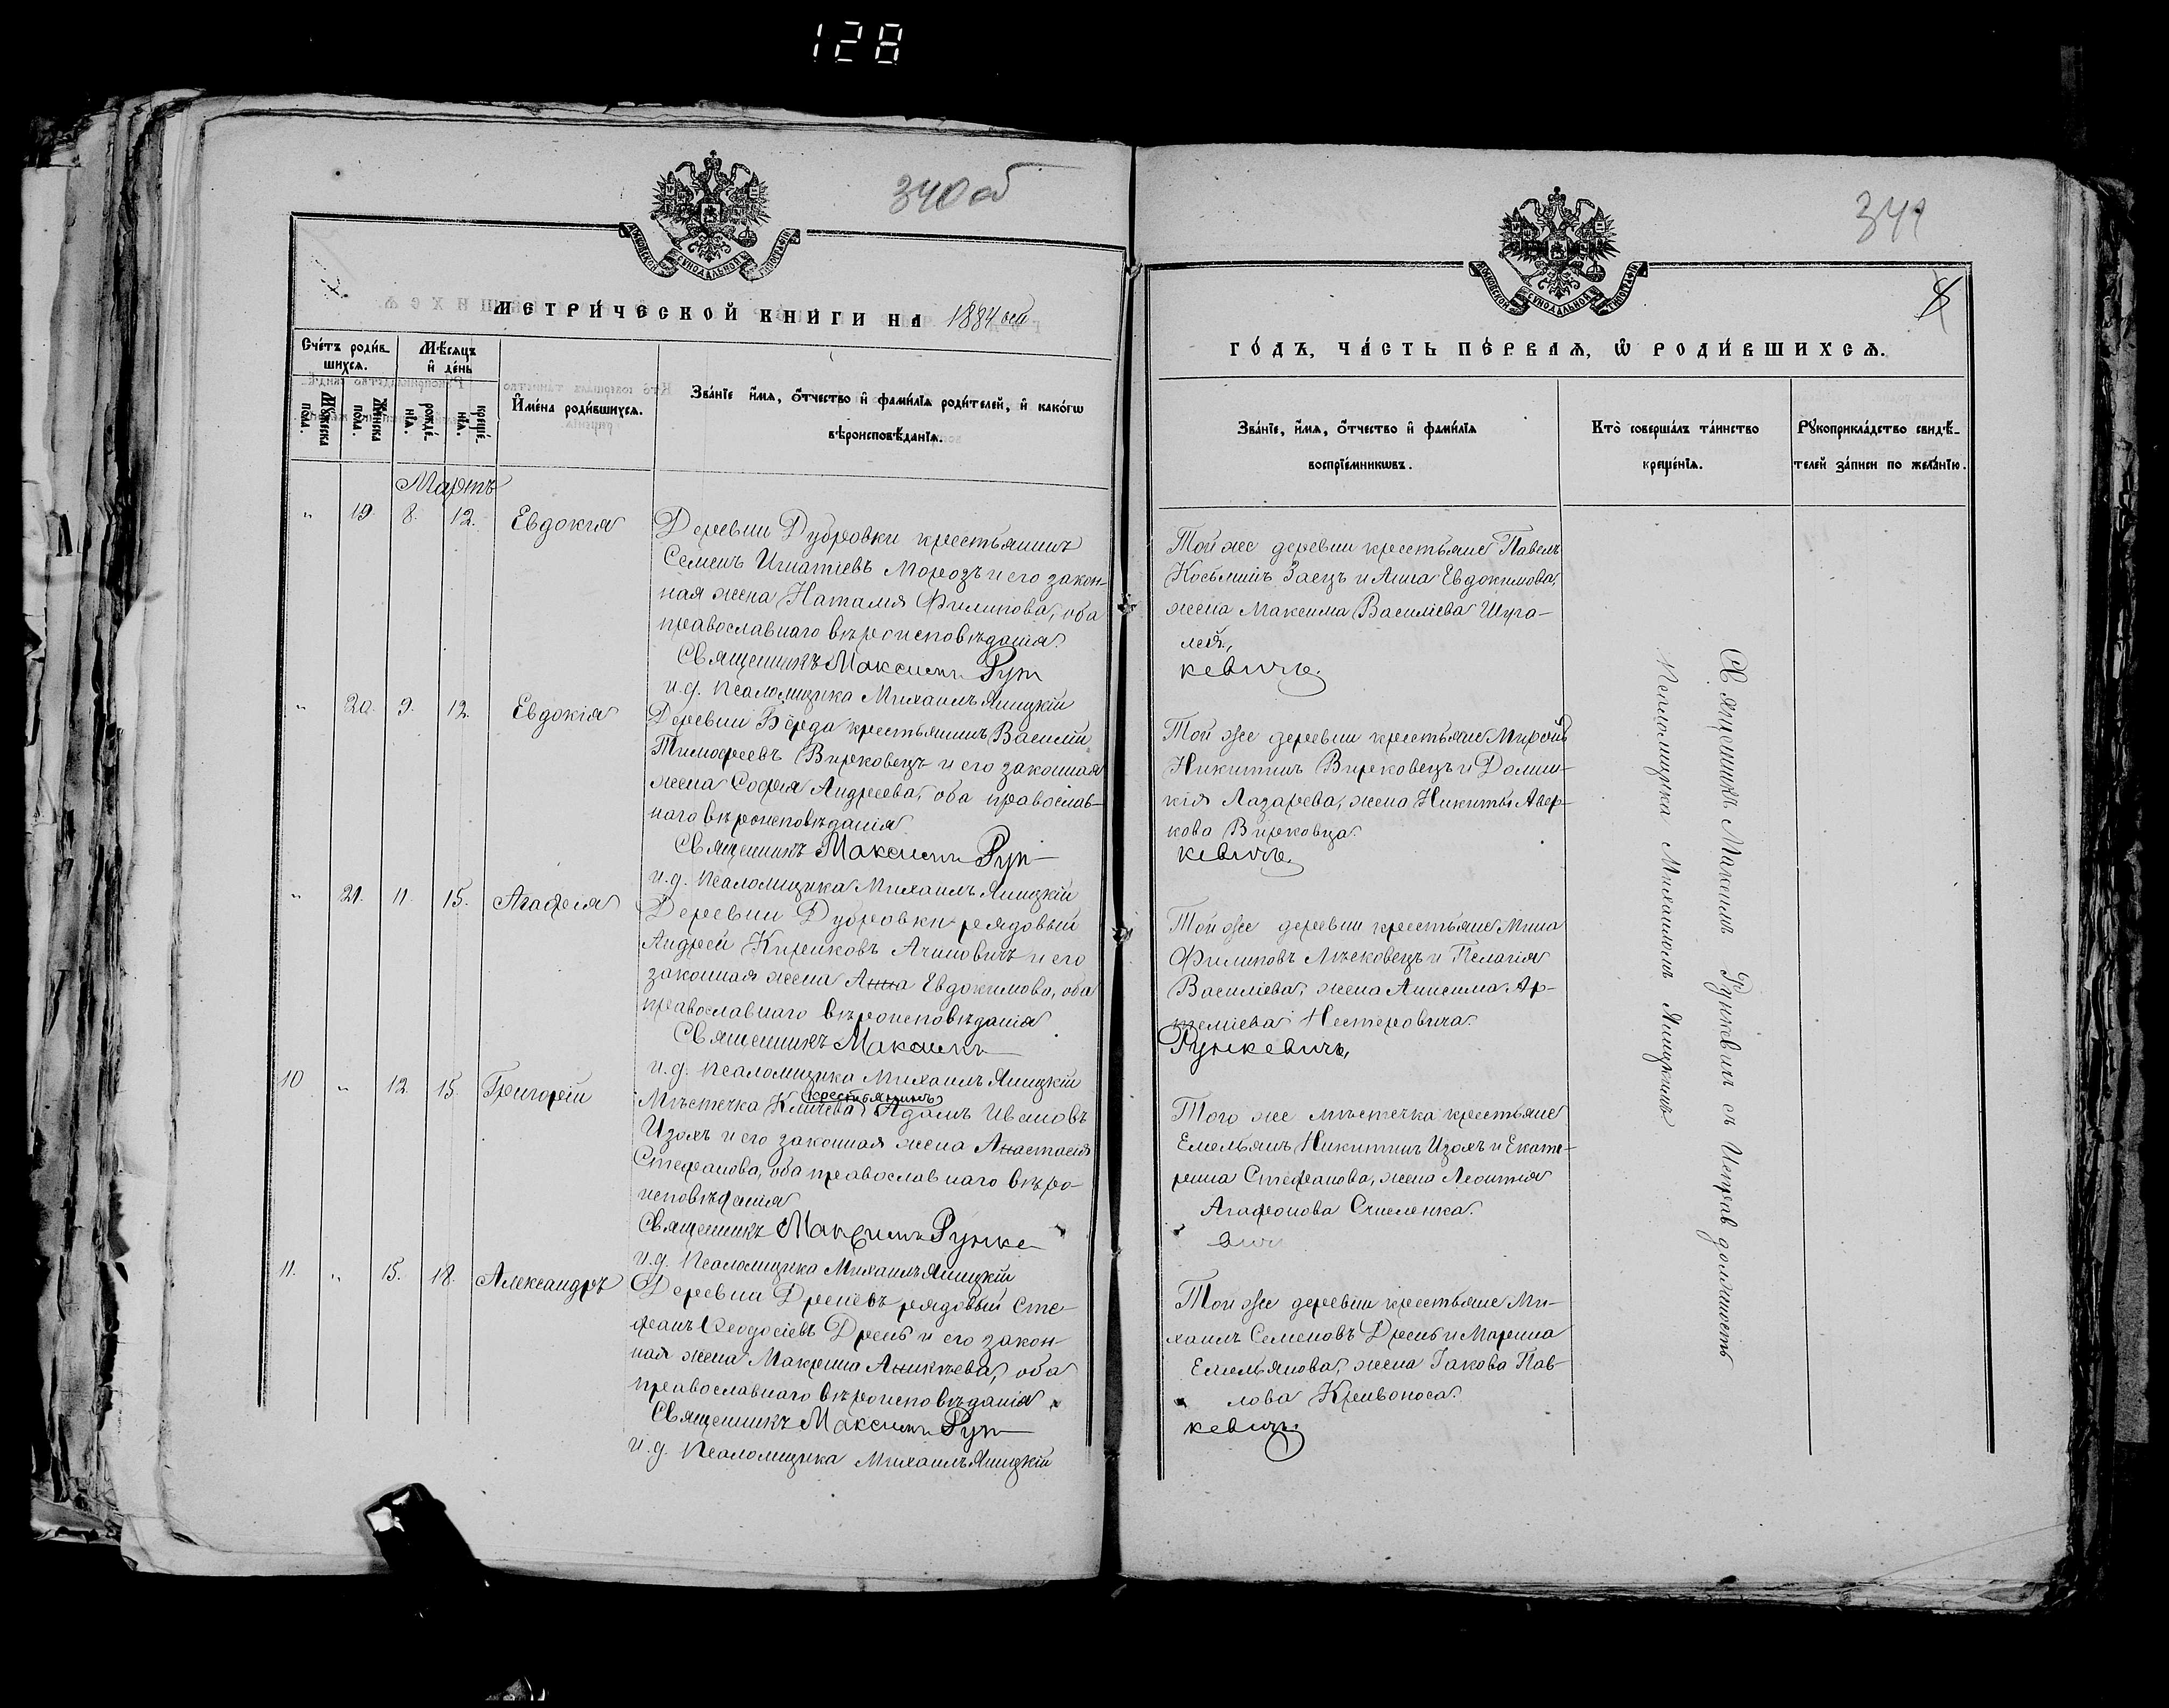 128
340 об
МОСКОВСКОЙ СУНОДАЛЬНОЙ ТИПОГРАФІИ
МЕТРИ́ЧЕСКОЙ КНИ́ГИ НА 1884 ый
Сче́тъ роди́в-
шихся.
Мѣ́сяцъ
и҆ де́нь
Мꙋ́жеска
пола.
Же́нска
пола.
рожде́-
нїѧ.
креще́-
нїѧ.
И҆мена̀ роди́вшихся.
Зва́нїе и҆́мѧ, ѻ҆́тчество и҆ фами́лїѧ роди́телей, и҆ како́гѡ
вѣроисповѣ́данїѧ.
Мартъ
" 19. 8. 12. Евдокія
Деревни Дубровки крестьянинъ
Семенъ Игнатіевъ Морозъ и его закон-
ная жена Наталія Филипова, оба
православнаго вѣроисповѣданія.
Священникъ Максимъ Рун
и.д. псаломщика Михаилъ Яницкій
" 20. 9. 12. Евдокія
Деревни Бѣрда крестьянинъ Василій
Тимофеевъ Вирковецъ и его законная
жена Софія Андреева, оба православ-
наго вѣроисповѣданія.
Священникъ Максимъ Рун-
и.д. псаломщика Михаилъ Яницкій
" 21. 11. 15. Агафія
Деревни Дубровки рядовый
Андрей Кириковъ Ачиновичъ и его
законная жена Анна Евдокимова, оба
православнаго вѣроисповѣданія
Священникъ Максимъ
и.д. псаломщика Михаилъ Яницкій
10 " 12. 15. Григорій
крестьянинъ
Мѣстечка Кличева Адамъ Ивановъ
Изохъ и его законная жена Анастасія
Стефанова, оба православнаго вѣро-
исповѣданія
Священникъ Максимъ Рунке
и.д. Псаломщика Михаилъ Яницкій
11. " 15. 18. Александръ
Деревни Дреневъ рядовый Сте-
фанъ Ѳеодосіевъ Дрень и его закон-
ная жена Макрина Аникіева, оба
православнаго вѣроисповѣданія
Священникъ Максимъ Рун
и.д. Псаломщика Михаилъ Яницкій
341
МОСКОВСКОЙ СУНОДАЛЬНОЙ ТИПОГРАФІИ
ГО́ДЪ, ЧА́СТЬ ПЕ́РВАѦ, Ѽ РОДИ́ВШИХСѦ.
Зва́нїе, и҆́мѧ, ѻ҆́тчество и҆ фами́лїѧ
воспрїе́мникѡвъ.
Кто̀ соверша́лъ та́инство
креще́нїѧ.
Рꙋкоприкла́дство свидѣ́-
телей за́писи по жела́нїю.
Той же деревни крестьяне Павелъ
Косьминъ Заецъ и Анна Евдокимова,
жена Максима Василіева Шуга-
лей.,
кевичъ.
Той же деревни крестьяне Миронъ
Никитинъ Вирковецъ и Домни-
кія Лазарева, жена Никиты Авер-
кова Вирковца.
кевичъ.
Той же деревни крестьяне Мина
Филиповъ Мѣсковецъ и Пелагія
Василіева, жена Анисима Ар-
теміева Нестеровича.
Рункевичъ,
Того же мѣстечка крестьяне
Емельянъ Никитинъ Изохъ и Екате-
рина Стефанова, жена Леонтія
Агафонова Счисленка.
вичъ
Той же деревни крестьяне Ми-
хаилъ Семеновъ Дрень и Марина
Емельянова, жена Іакова Пав-
лова Кривоноса.
кевичъ.
Священникъ Максимъ Рункевичъ съ Исправ. должность
Псаломщика Михаиломъ Яницкимъ